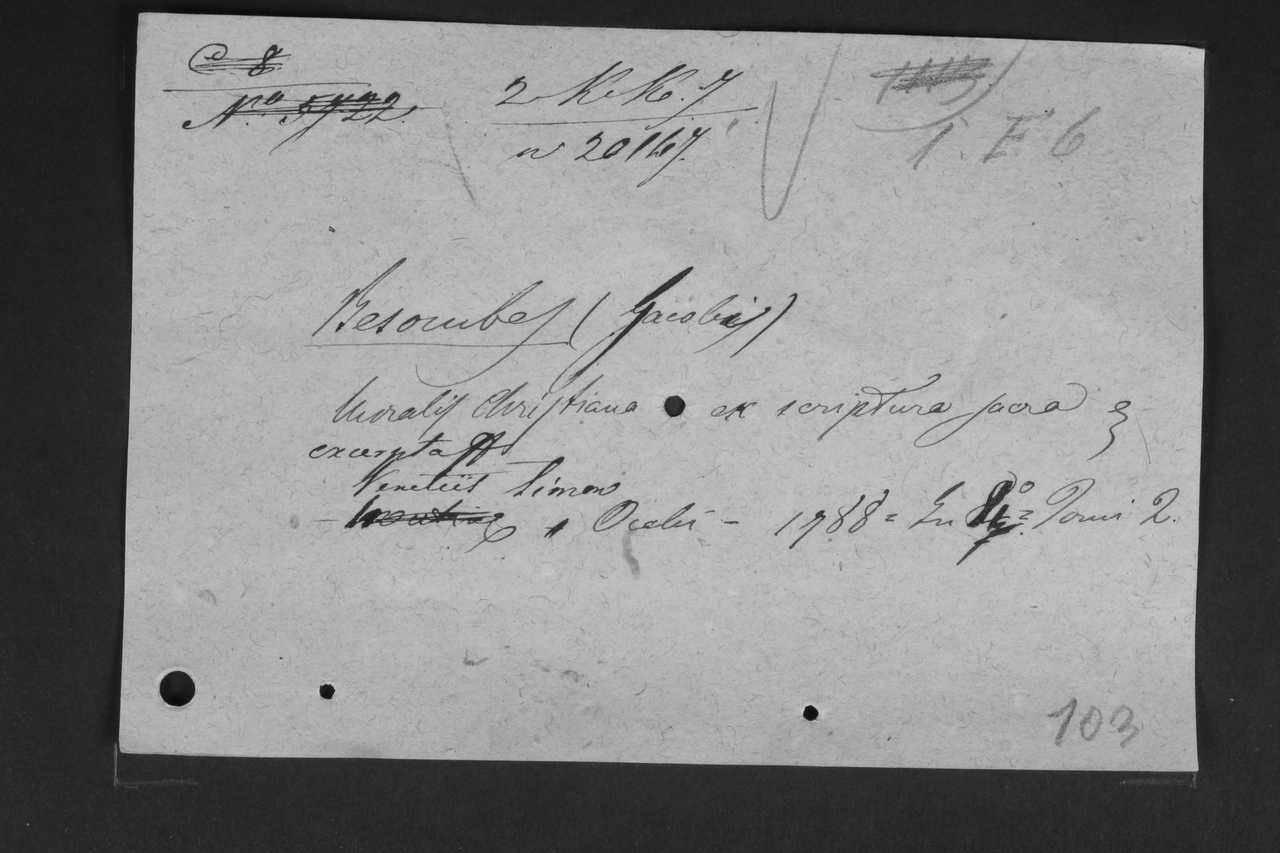 C 8
N.º 5722.
2 K.K. 7
n 20167.
1 E 6
Besombes (Jacobis)
Moralis Christiana ex scriptura sacra &
excerpta
Venetiis Simon
Occhi - 1788 = In 8º = Tomi 2.
103